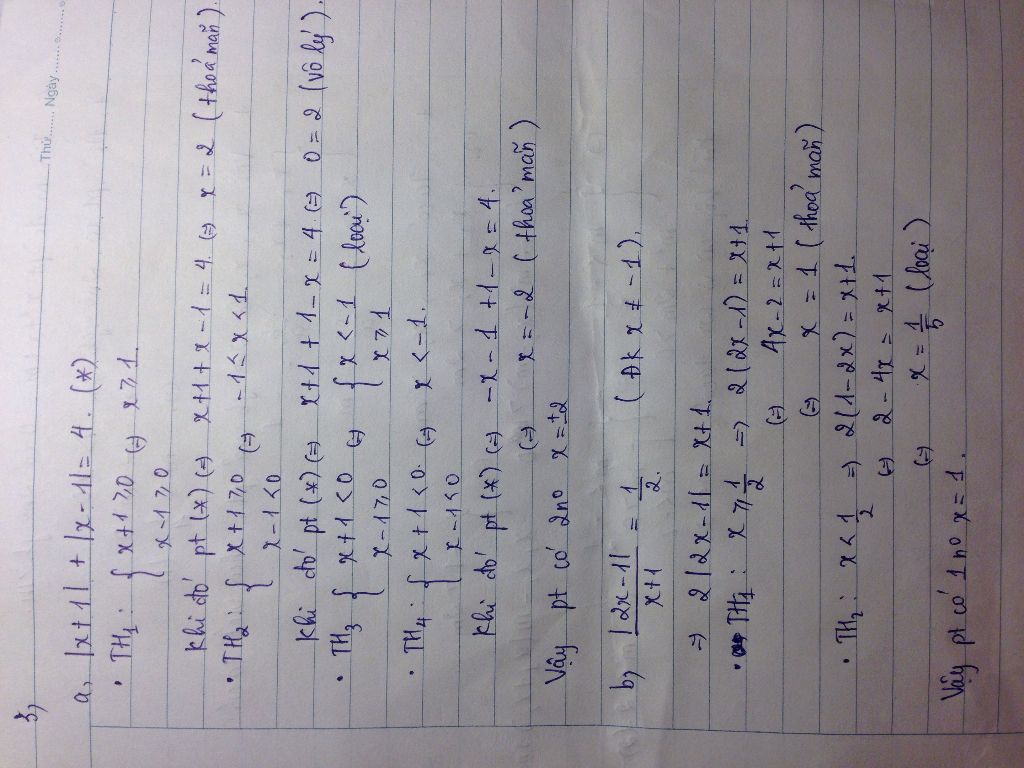 Thứ ........ Ngày ........
3,
a, |x+1| + |x-1| = 4. (*)
• TH1: { x+1 ≥ 0 (=) x ≥ 1.
x-1 ≥ 0
Khi đó pt (*) (=) x+1+x-1 = 4. (=) x = 2 (thoả mãn).
• TH2: { x+1 ≥ 0 (=) -1 ≤ x < 1.
x-1 < 0
Khi đó pt (*) (=) x+1+1-x = 4. (=) 0 = 2 (vô lý).
• TH3 { x+1 < 0 (=) { x < -1 (loại)
x-1 ≥ 0 x ≥ 1
• TH4: { x+1 < 0. (=) x < -1.
x-1 < 0
Khi đó pt (*) (=) -x-1+1-x = 4.
(=) x = -2 (thoả mãn)
Vậy pt có 2 no x = ±2
b, |2x-1| / x+1 = 1/2. (Đk x ≠ -1).
=> 2|2x-1| = x+1.
• TH1: x ≥ 1/2 => 2(2x-1) = x+1.
(=) 4x-2 = x+1
(=) x = 1 (thoả mãn)
• TH2: x < 1/2 => 2(1-2x) = x+1.
(=) 2-4x = x+1
(=) x = 1/5 (loại)
Vậy pt có 1 no x = 1.